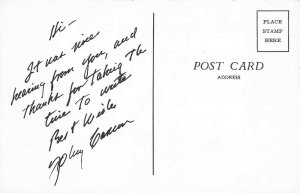 Hi-
It was nice
hearing from you, and
thanks for taking the
time to write
Best Wishes
Johnny Carson
POST CARD
ADDRESS
PLACE
STAMP
HERE